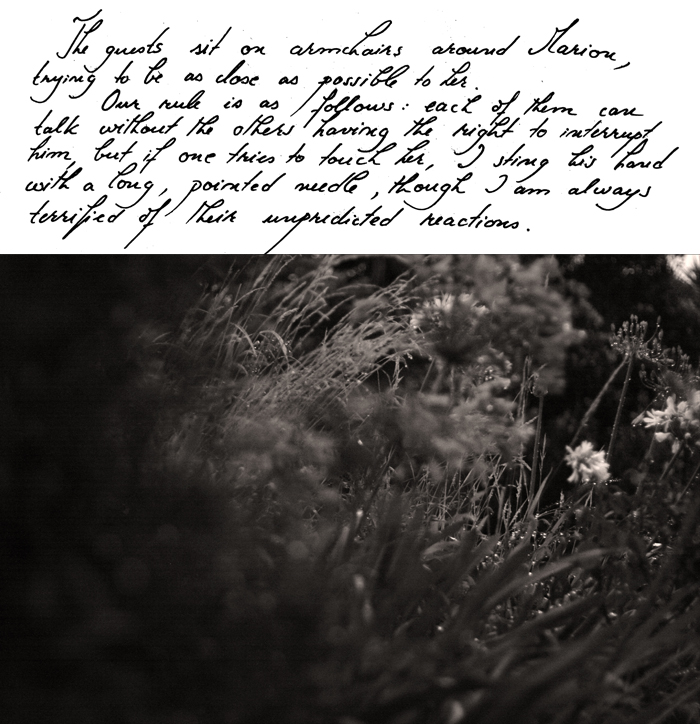 The guests sit on armchairs around Marion,
trying to be as close as possible to her.
Our rule is as follows: each of them can
talk without the others having the right to interrupt
him, but if one tries to touch her, I sting his hand
with a long, pointed needle, though I am always
terrified of their unpredicted reactions.